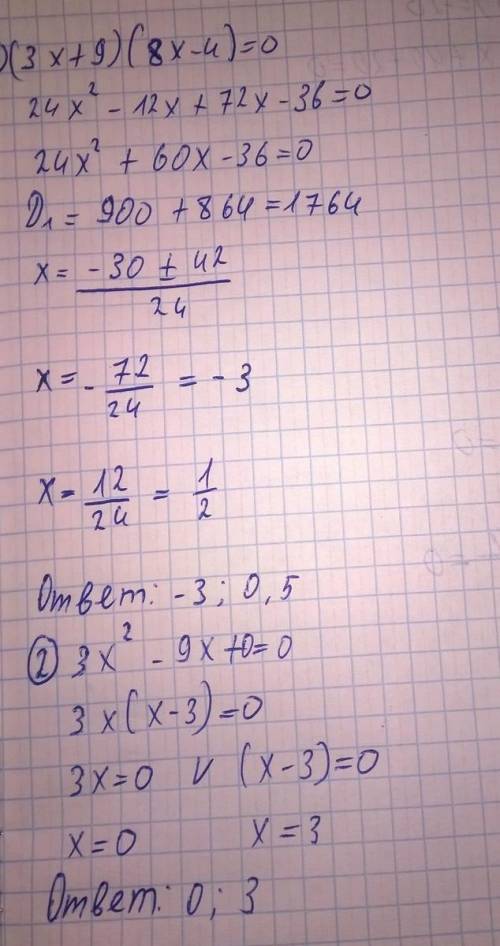 )(3x+9)(8x-4)=0
24x² - 12x + 72x - 36 = 0
24x² + 60x - 36 = 0
D₁ = 900 + 864 = 1764
x = (-30 ± 42)/24
x = - 72/24 = -3
x = 12/24 = 1/2
Ответ: -3; 0,5
② 3x² - 9x + 0 = 0
3x(x-3)=0
3x=0 v (x-3)=0
x=0 x=3
Ответ: 0; 3